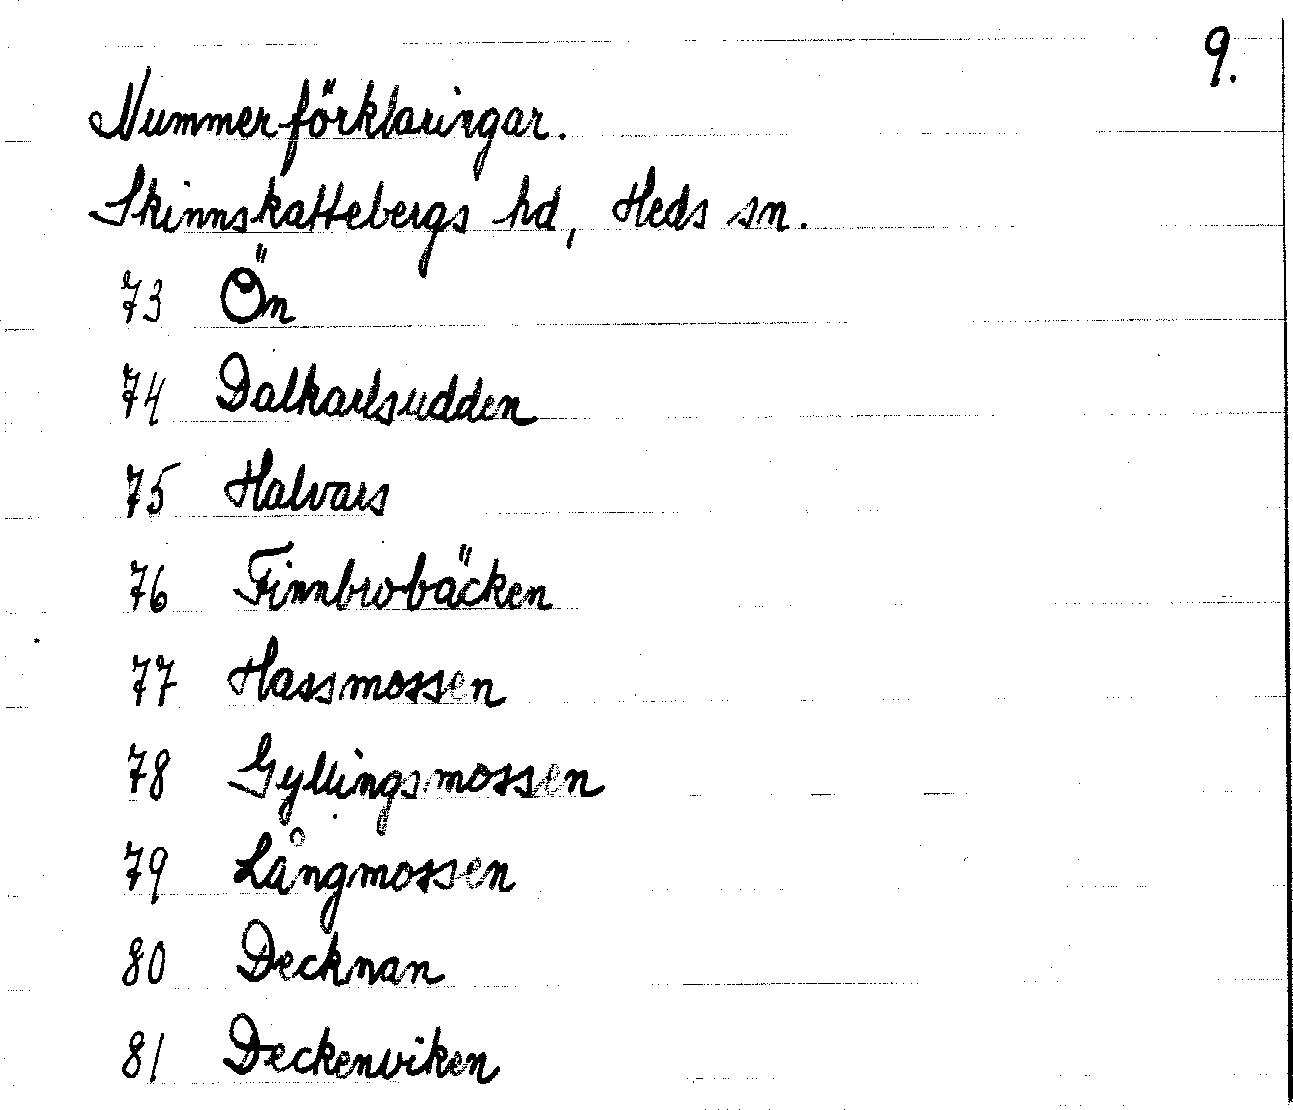 9.
Nummerförklaringar.
Skinnskattebergs hd, Heds sn.
73 Ön
74 Dalkarlsudden
75 Halvars
76 Finnbrobäcken
77 Hassmossen
78 Gyllingsmossen
79 Långmossen
80 Decknan
81 Deckenviken